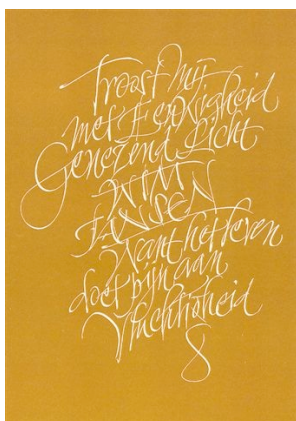 Troost mij
met Eeuwigheid
Genezend Licht
WIM
JANSEN
Want het leven
doet pijn aan
Vluchtigheid